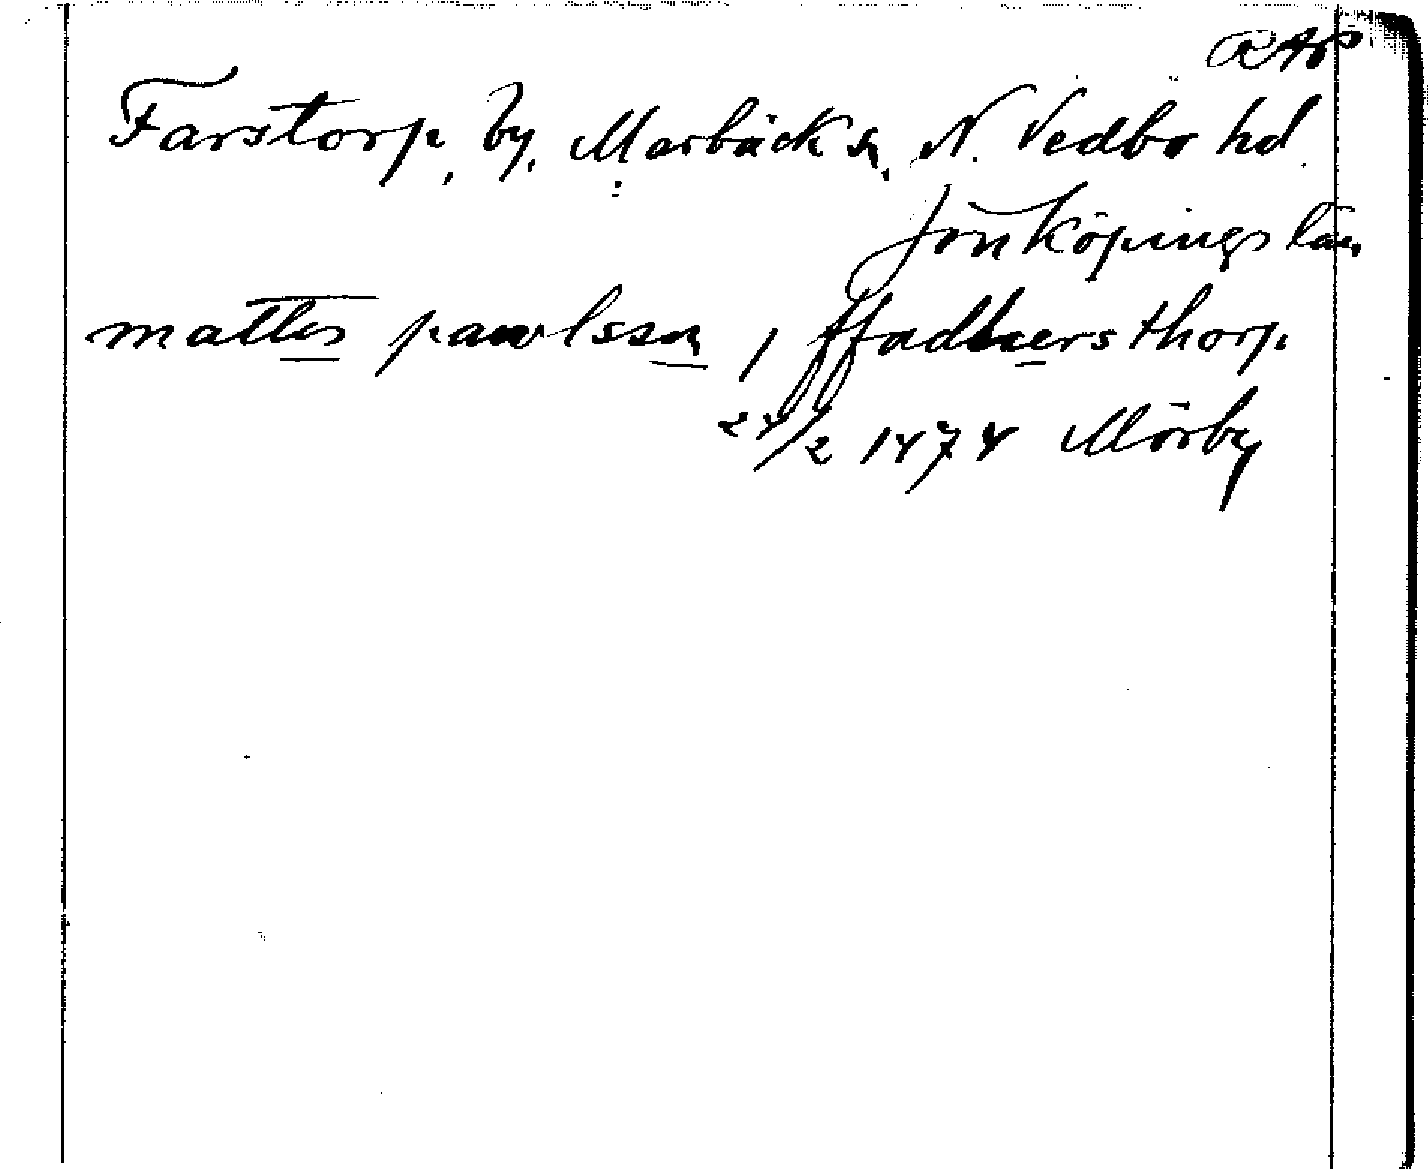 RAp
Farstorp, by, Marbäck sn, N. Vedbo hd.
Jönköpings län
mattes pawlsson, i ffadhersthorp
24/2 1474 Mörby